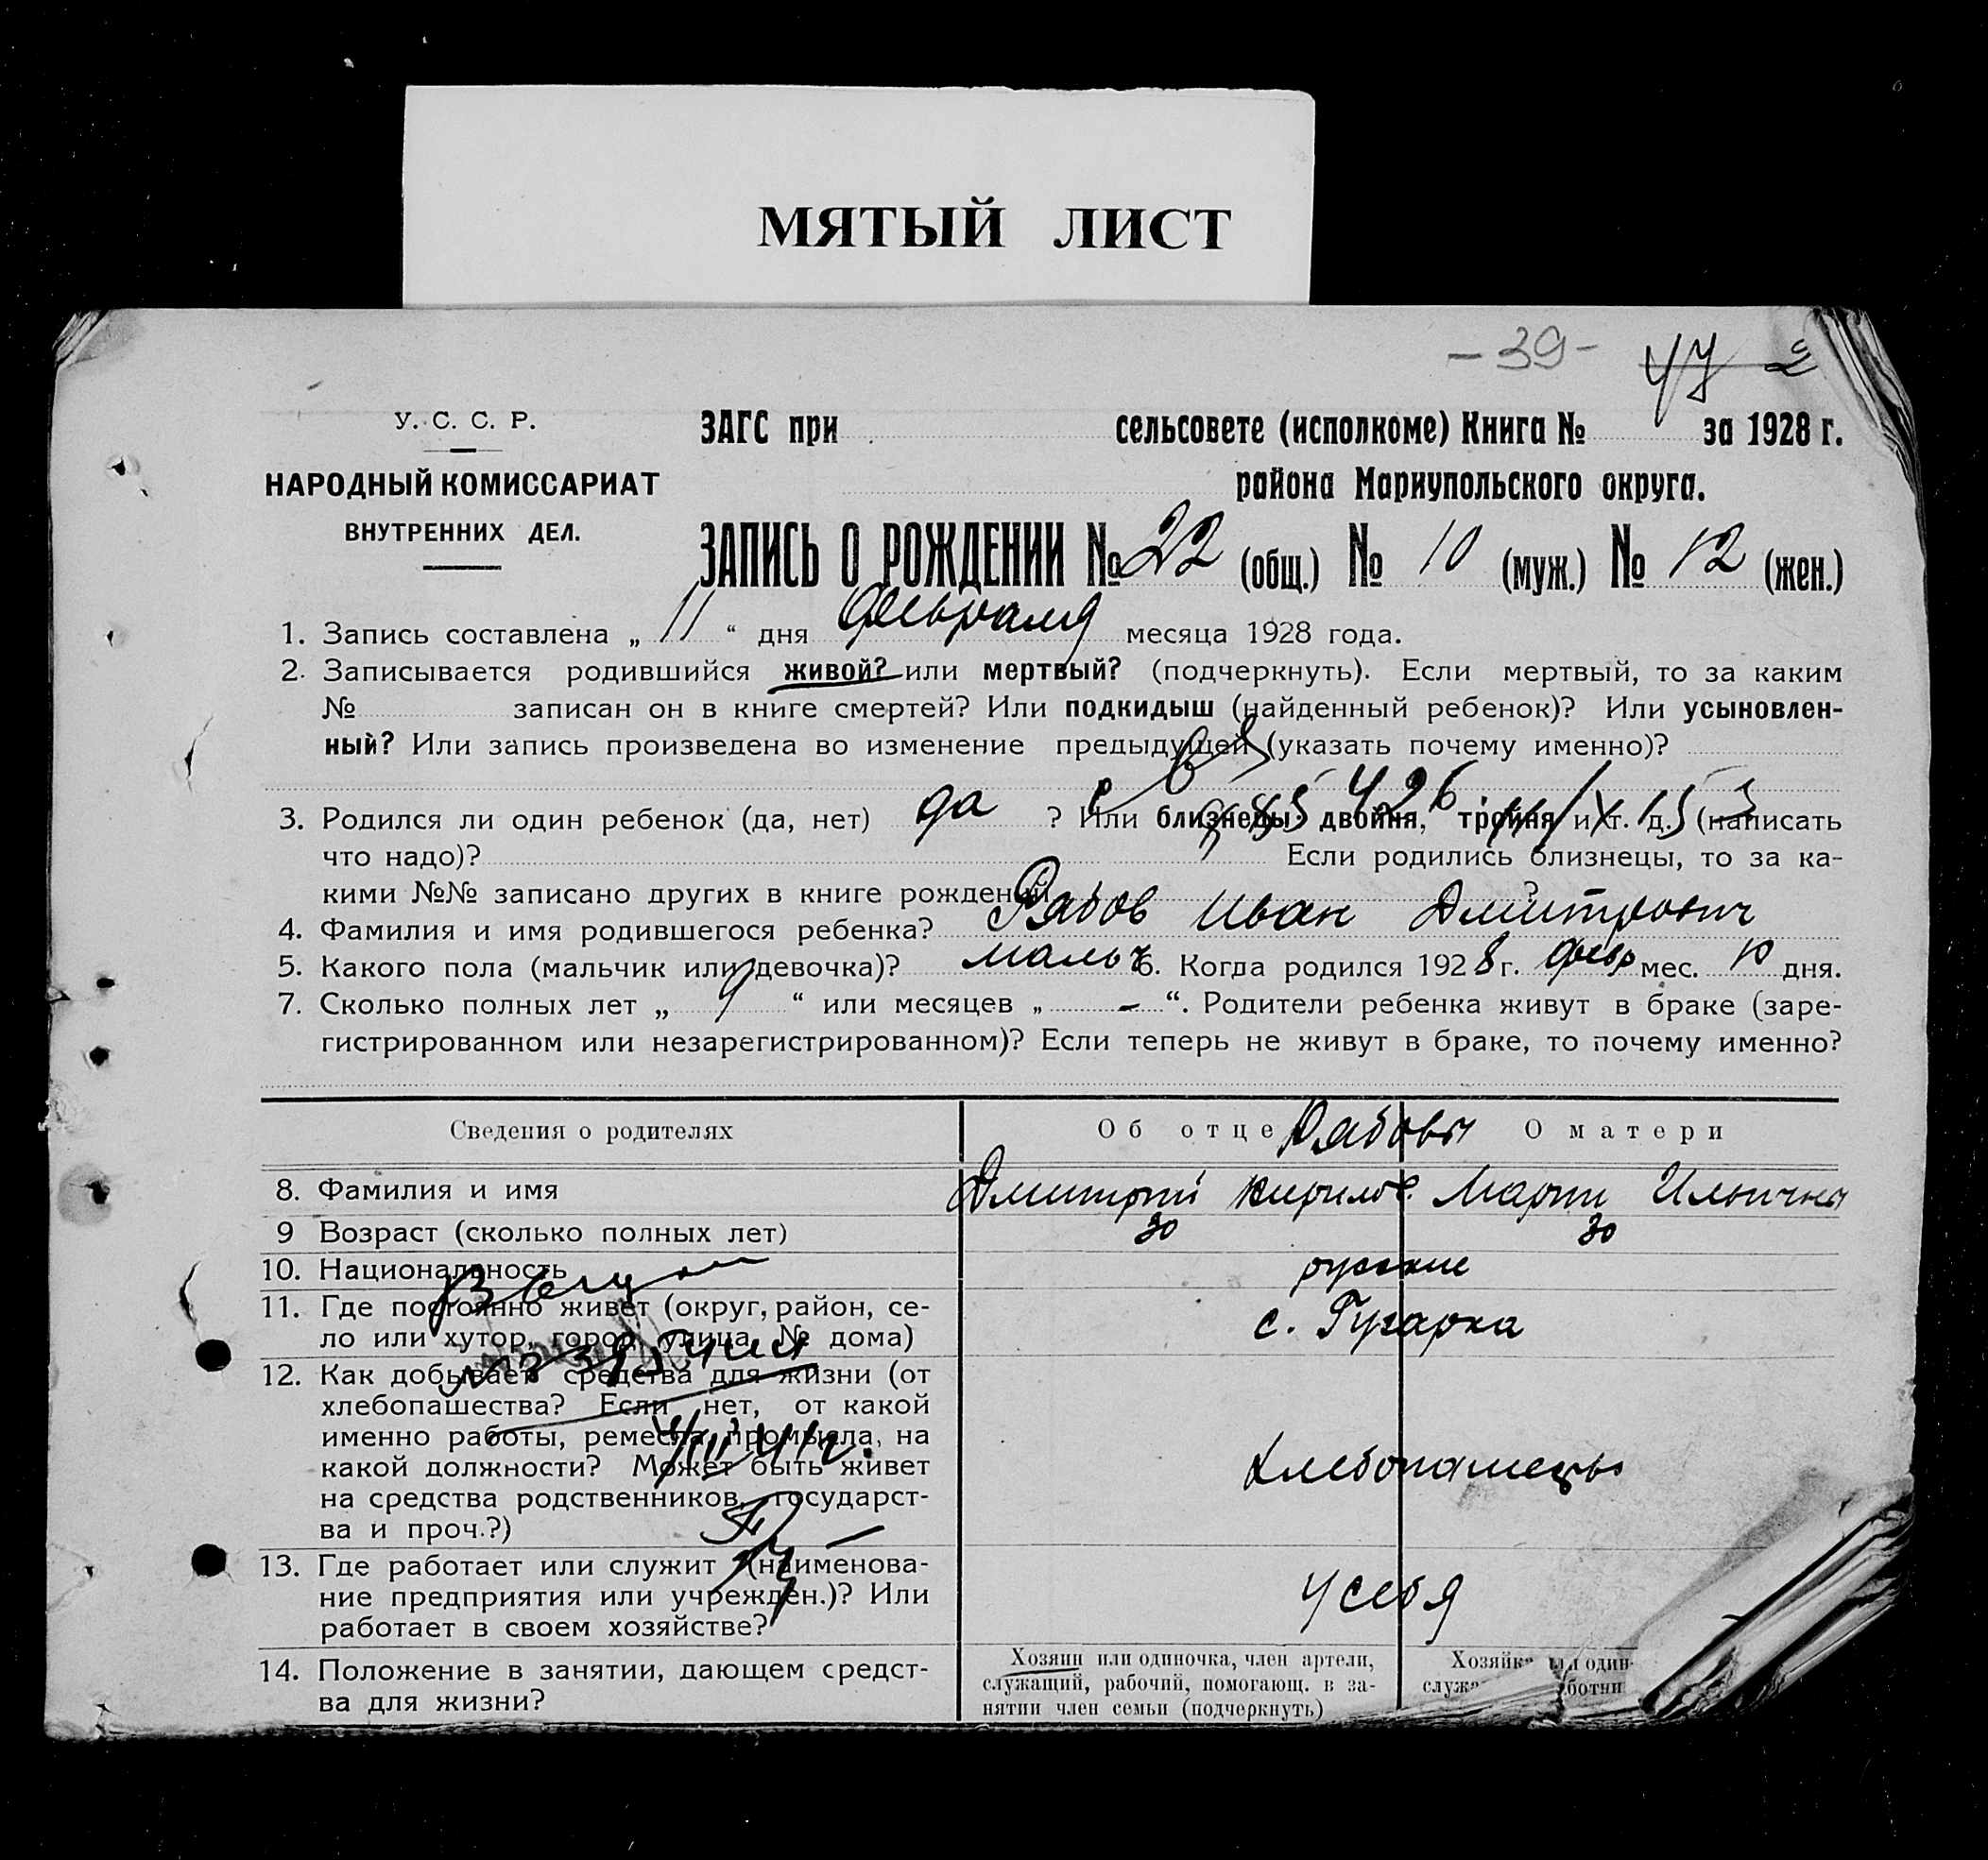 МЯТЫЙ ЛИСТ
-39- 47
У. С. С. Р.
НАРОДНЫЙ КОМИССАРИАТ
ВНУТРЕННИХ ДЕЛ.
ЗАГС при сельсовете (исполкоме) Книга № за 1928 г.
района Мариупольского округа.
ЗАПИСЬ О РОЖДЕНИИ № 22 (общ.) № 10 (муж.) № 12 (жен.)
1. Запись составлена „ 11 “ дня февраля месяца 1928 года.
2. Записывается родившийся живой? или мертвый? (подчеркнуть). Если мертвый, то за каким
№ записан он в книге смертей? Или подкидыш (найденный ребенок)? Или усыновлен-
ный? Или запись произведена во изменение предыдущей (указать почему именно)?
3. Родился ли один ребенок (да, нет) да ? Или близнецы: двойня, тройня и т. д. (написать
что надо)? Если родились близнецы, то за ка-
кими №№ записано других в книге рождений ?
4. Фамилия и имя родившегося ребенка? Рябов Иван Дмитрович
5. Какого пола (мальчик или девочка)? мальч 6. Когда родился 1928 г. февр мес. 10 дня.
7. Сколько полных лет „ 9 “ или месяцев „ - “. Родители ребенка живут в браке (заре-
гистрированном или незарегистрированном)? Если теперь не живут в браке, то почему именно?
Сведения о родителях Об отце Рябовы О матери
8. Фамилия и имя Дмитрий Кирилов. Марти Ильична
9 Возраст (сколько полных лет) 30 30
10. Национальность русские
11. Где постоянно живет (округ, район, се-
ло или хутор, город, улица, № дома) с. Гусарка
12. Как добывает средства для жизни (от
хлебопашества? Если нет, от какой
именно работы, ремесла, промысла, на
какой должности? Может быть живет
на средства родственников, государст-
ва и проч.?) Хлебопашецы
13. Где работает или служит (наименова-
ние предприятия или учрежден.)? Или
работает в своем хозяйстве? у себя
14. Положение в занятии, дающем средст-
ва для жизни?
Хозяин или одиночка, член артели,
служащий, рабочий, помогающ. в за-
нятии член семьи (подчеркнуть)
Хозяйка или один-